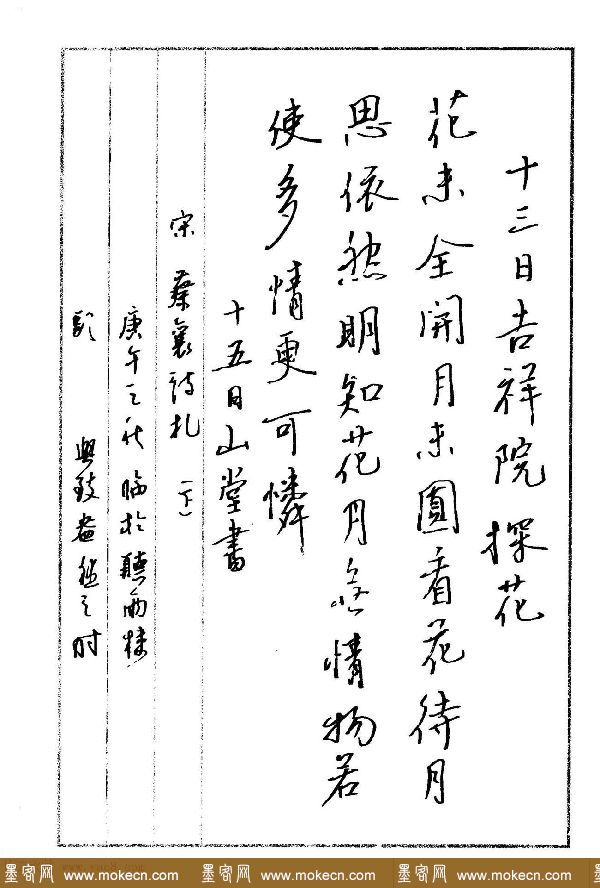 十三日吉祥院探花
花未全開月未圓看花待月
思依然明知花月無情物若
使多情更可憐
十五日山堂書
宋 蔡襄詩札 (下)
庚午之秋臨於聽雨樓
興致盎然之时
墨客网 www.mokecn.com 墨客网 www.mokecn.com 墨客网 www.mokecn.com